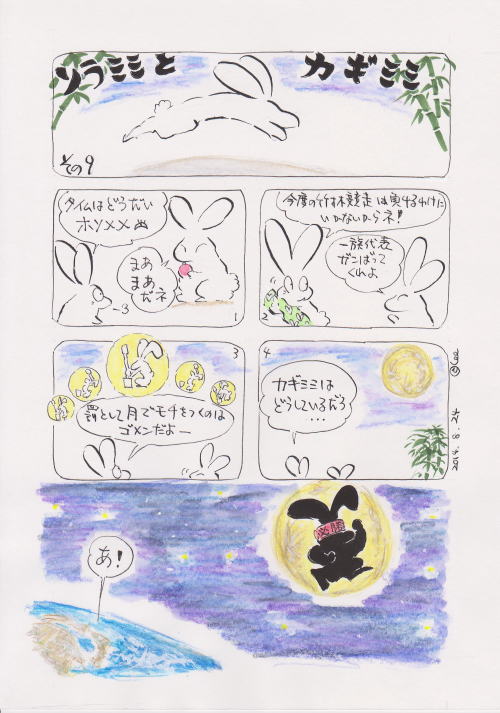 ソラミミと
カギミミ
その9
タイムはどうだい
ホソメメ
まあ
まあ
だネ
1
今度の竹林競走は負けるわけに
いかないからネ!
一族代表
ガンばって
くれよ
2
3
罰として月でモチをつくのは
ゴメンだよー
4
カギミミは
どうしているだろ
・・・
2014.8.24
必勝
あ!